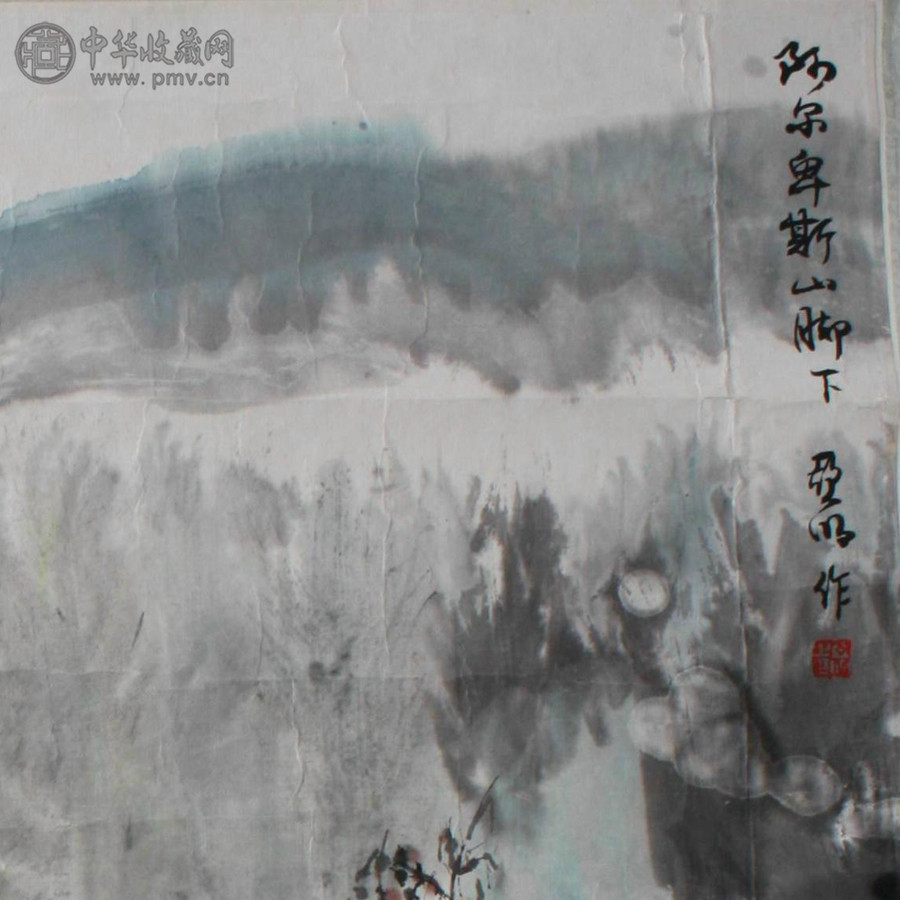 中华收藏网
www.pmv.cn
阿尔卑斯山脚下
亚明作